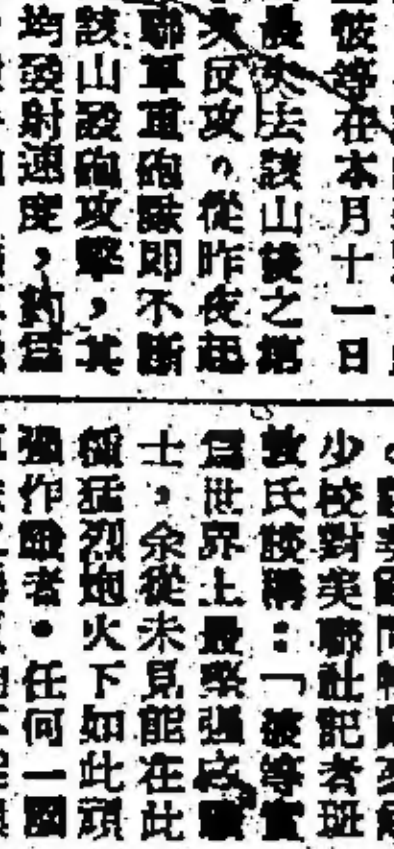 彼等在本月十一日
最失去該山後之第
次反攻。從昨夜起
聯軍重砲隊即不斷
該山設砲攻擊,其
均發射速度,約為
少校對美聯社記者班
敦氏談稱:「彼等實
為世界上最堅強之
士,余從未見能在此
種猛烈炮火下如此頑
強作戰者。任何一國